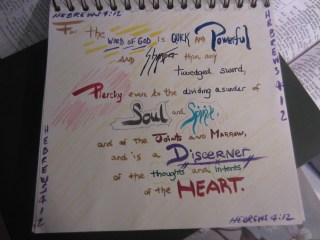 HEBREWS 4:12
For the WORD OF GOD is QUICK AND Powerful
AND Sharper than any
twoedged sword,
Piercing even to the dividing asunder of
Soul and Spirit,
and of the Joints AND MARROW,
and is a DISCERNER
of the thoughts and intents
of the HEART.
HEBREWS 4:12
HEBREWS 4:12
HEBREWS 4:12